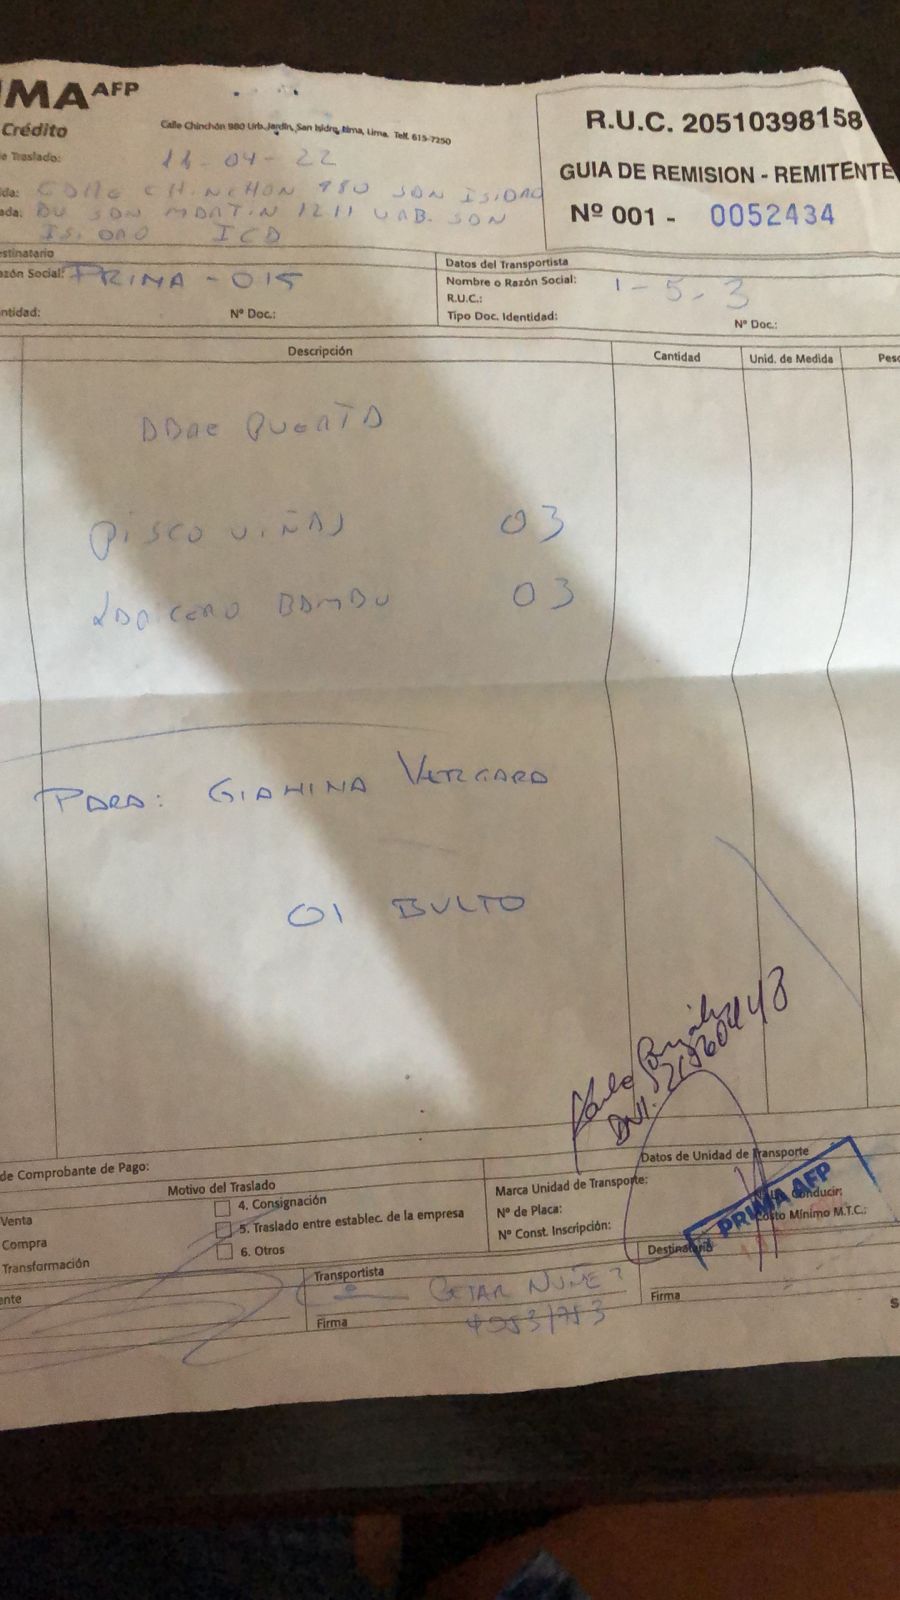 IMA AFP
Crédito
Calle Chinchón 980 Urb. Jardín, San Isidro, Lima, Lima. Telf. 615-7250
R.U.C. 20510398158
GUIA DE REMISION - REMITENTE
Nº 001 - 0052434
e Traslado: 11-04-22
ida: CALLE CHINCHON 980 SAN ISIDRO
ada: AV SAN MARTIN 1211 URB. SAN
ISIDRO ICA
estinatario
azón Social: PRIMA - 015
ntidad: Nº Doc.:
Datos del Transportista
Nombre o Razón Social: 1-5-3
R.U.C.:
Tipo Doc. Identidad: Nº Doc.:
Descripción Cantidad Unid. de Medida Peso
ABRE PUERTA
PISCO VIÑAS 03
LAPICERO BAMBU 03
PARA: GIANINA VERGARA
01 BULTO
DNI.
de Comprobante de Pago:
Motivo del Traslado
Venta
Compra
Transformación
4. Consignación
5. Traslado entre establec. de la empresa
6. Otros
Datos de Unidad de Transporte
Marca Unidad de Transporte:
Nº de Placa:
Nº Const. Inscripción:
Conducir:
Costo Mínimo M.T.C.:
PRIMA AFP
ente
Transportista
CESAR NUÑEZ
Firma
Destinatario
Firma
S